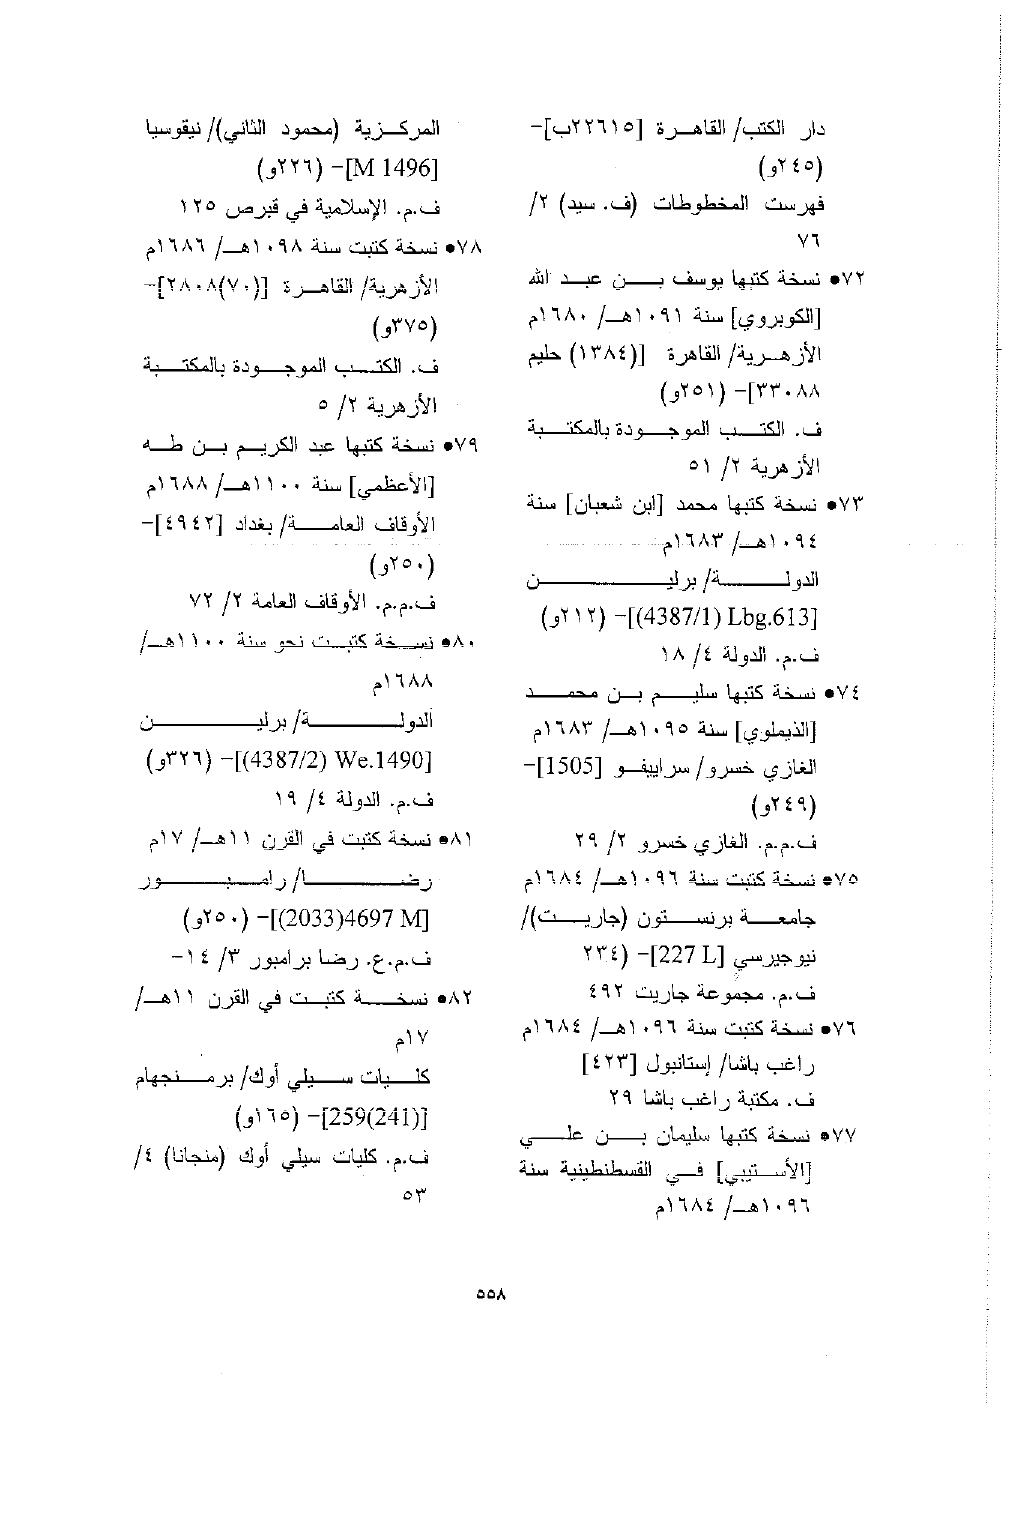 دار الكتب/ القاهرة [٢٢٦١٥ب]-
(٢٤٥و)
فهرست المخطوطات (ف. سيد) ٢/
٧٦
٧٢• نسخة كتبها يوسف بن عبد الله
[الكوبروي] سنة ١٠٩١هـ/ ١٦٨٠م
الأزهرية/ القاهرة [(١٣٨٤) حليم
٣٣٠٨٨]- (٢٥١و)
ف. الكتب الموجودة بالمكتبة
الأزهرية ٢/ ٥١
٧٣• نسخة كتبها محمد [ابن شعبان] سنة
١٠٩٤هـ/ ١٦٨٣م
الدولة/ برلين
[Lbg.613 (4387/1)]- (٢١٢و)
ف.م. الدولة ٤/ ١٨
٧٤• نسخة كتبها سليم بن محمد
[الذيملوي] سنة ١٠٩٥هـ/ ١٦٨٣م
الغازي خسرو/ سراييفو [1505]-
(٢٤٩و)
ف.م.م. الغازي خسرو ٢/ ٢٩
٧٥• نسخة كتبت سنة ١٠٩٦هـ/ ١٦٨٤م
جامعة برنستون (جاريت)/
نيوجيرسي [227 L]- (٢٣٤
ف.م. مجموعة جاريت ٤٩٢
٧٦• نسخة كتبت سنة ١٠٩٦هـ/ ١٦٨٤م
راغب باشا/ إستانبول [٤٢٣]
ف. مكتبة راغب باشا ٢٩
٧٧• نسخة كتبها سليمان بن علي
[الأستيبي] في القسطنطينية سنة
١٠٩٦هـ/ ١٦٨٤م
المركزية (محمود الثاني)/ نيقوسيا
[M 1496]- (٢٢٦و)
ف.م. الإسلامية في قبرص ١٢٥
٧٨• نسخة كتبت سنة ١٠٩٨هـ/ ١٦٨٦م
الأزهرية/ القاهرة [(٧٠)٢٨٠٨]-
(٣٧٥و)
ف. الكتب الموجودة بالمكتبة
الأزهرية ٢/ ٥
٧٩• نسخة كتبها عبد الكريم بن طه
[الأعظمي] سنة ١١٠٠هـ/ ١٦٨٨م
الأوقاف العامة/ بغداد [٤٩٤٢]-
(٢٥٠و)
ف.م.م. الأوقاف العامة ٢/ ٧٢
٨٠• نسخة كتبت نحو سنة ١١٠٠هـ/
١٦٨٨م
الدولة/ برلين
[We.1490 (4387/2)]- (٣٢٦و)
ف.م. الدولة ٤/ ١٩
٨١• نسخة كتبت في القرن ١١هـ/ ١٧م
رضا/ رامبور
[4697 M(2033)]- (٢٥٠و)
ف.م.ع. رضا برامبور ٣/ ١٤-
٨٢• نسخة كتبت في القرن ١١هـ/
١٧م
كليات سيلي أوك/ برمنجهام
[259(241)]- (١٦٥و)
ف.م. كليات سيلي أوك (منجانا) ٤/
٥٣
٥٥٨